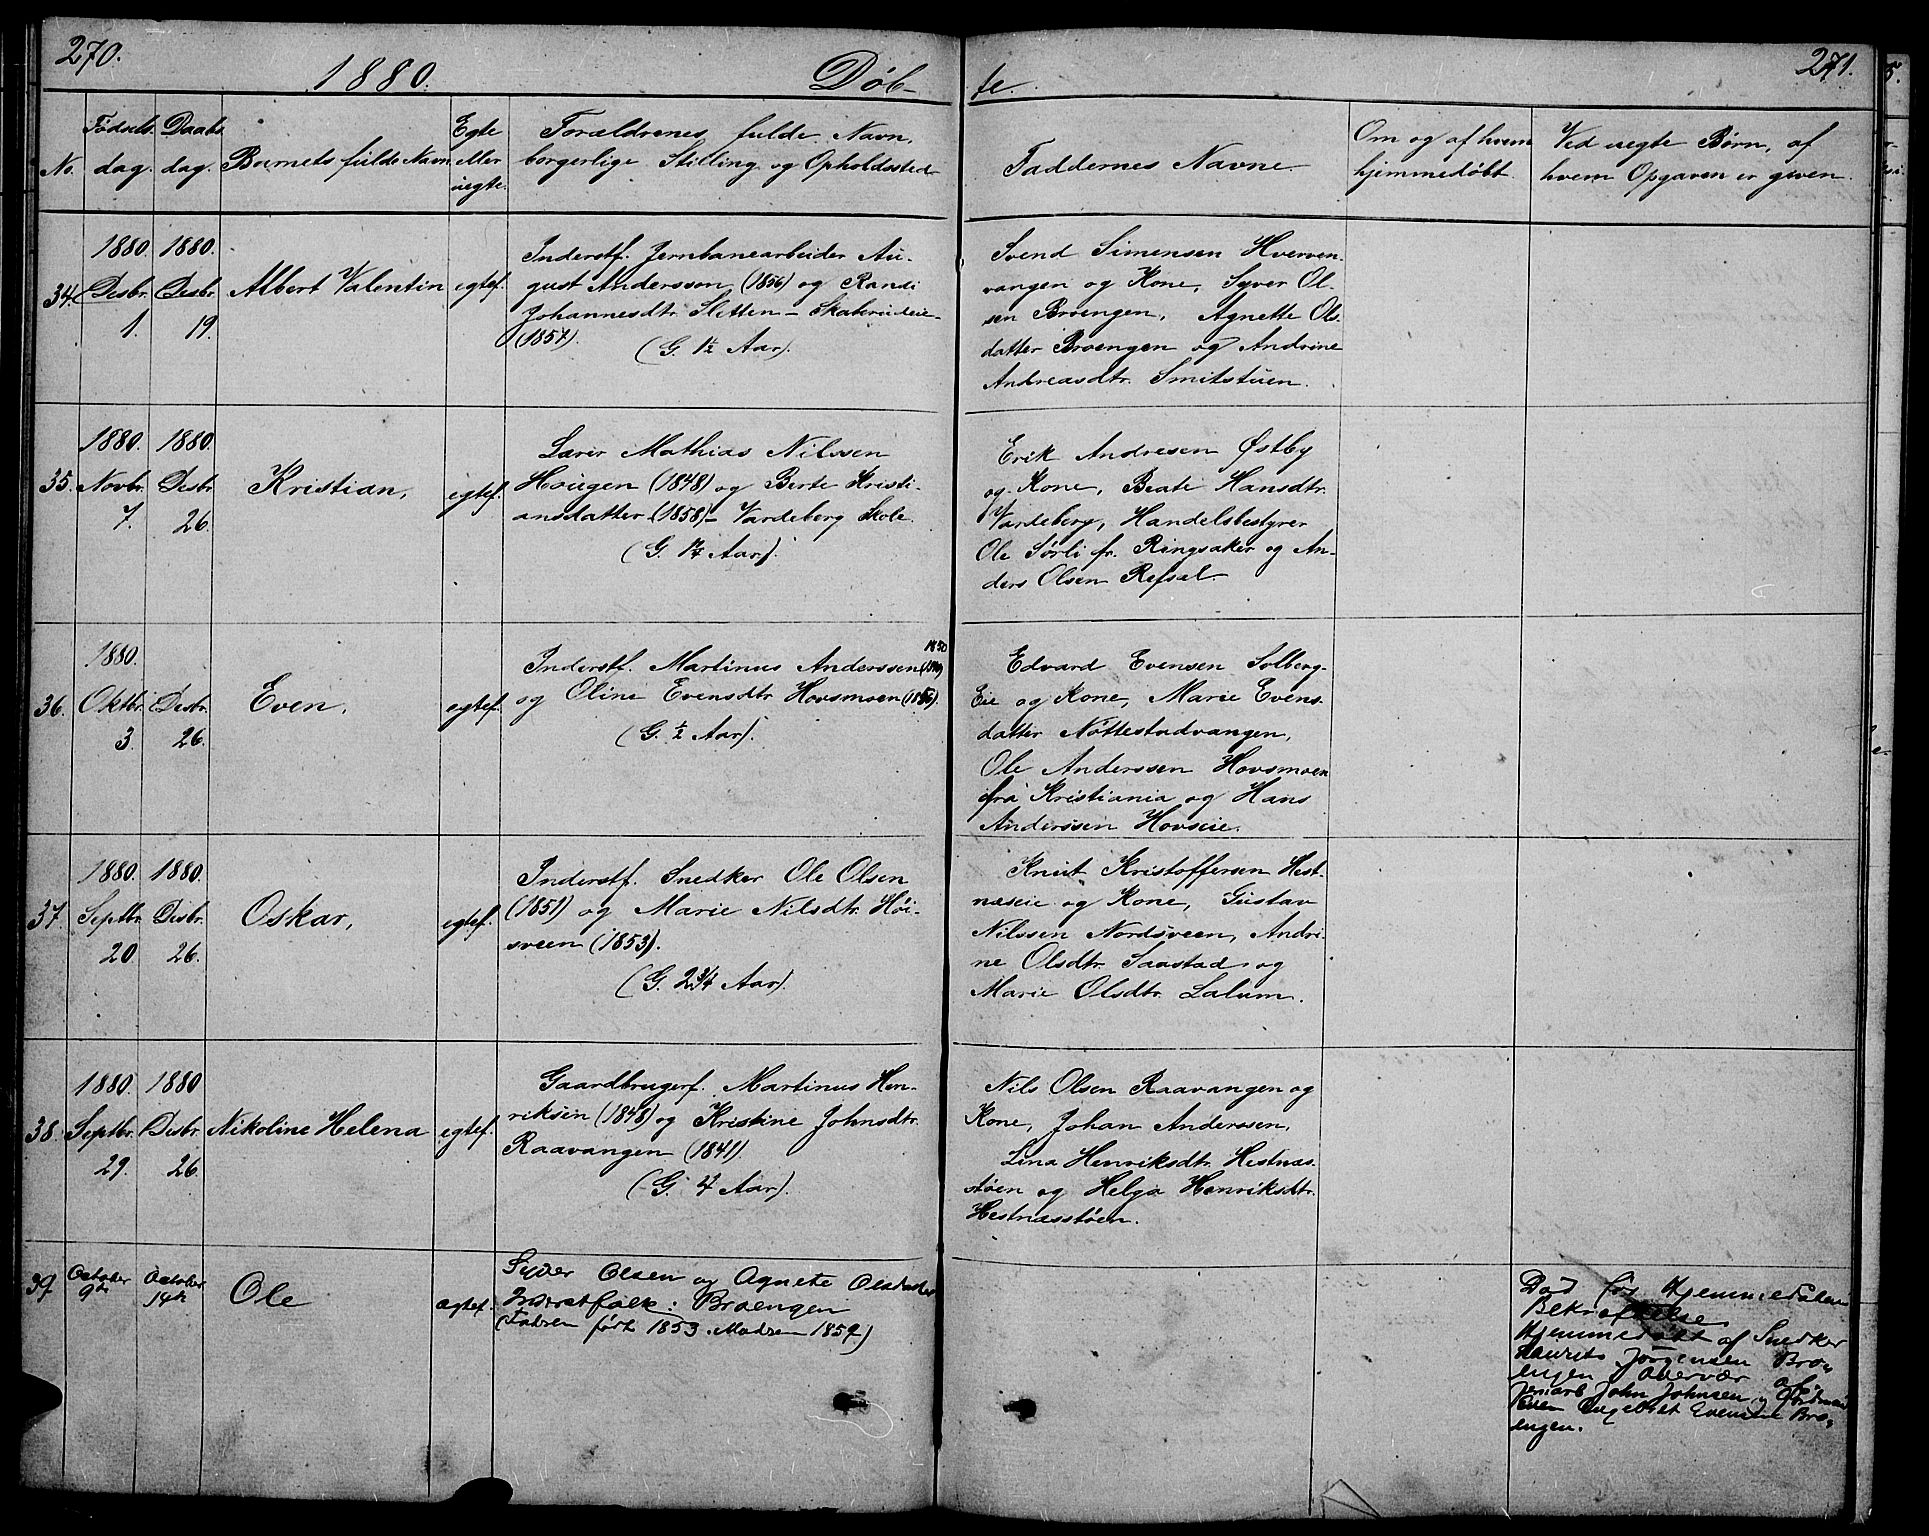 270.
1880.
Døb-
te.
271.
No.
Fødsels-
dag.
Daabs
dag.
Barnets fulde Navn
Egte
eller
uegte.
Forældrenes fulde Navn,
borgerlige Stilling og Opholdssted
Faddernes Navne.
Om og af hvem
hjemmedøbt.
Ved uegte Børn, af
hvem Opgaven er given.
34.
1880.
Desbr.
1.
1880.
Desbr.
19.
Albert Valentin
egtef.
Inderstf. Jernbanearbeider Au-
gust Anderssen (1856) og Randi
Johannesdtr. Sletten - Skaterudeie-
(1857).
(G. 1½ Aar).
Svend Simensen Hverven-
vangen og Kone, Syver Ol-
sen Broengen, Agnette Ols-
datter Broengen og Andrine
Andreasdtr. Smitstuen.
35.
1880.
Novbr.
7.
1880.
Desbr.
26.
Kristian,
egtef.
Lærer Mathias Nilssen
Hougen (1848) og Berte Kristi-
ansdatter (1858) - Vardeberg Skole.
(G. 1¼ Aar).
Erik Andresen Østby
og Kone, Beate Hansdtr.
Vardeberg, Handelsbestyrer
Ole Sørli fr. Ringsaker og An-
ders Olsen Refsal.
36.
1880.
Oktbr.
3.
Desbr.
26.
Even,
egtef.
1850
Inderstf. Martinus Anderssen
og Oline Evensdtr. Hovsmoen (1856).
(G. ½ Aar).
Edvard Evensen Solberg-
Eie og Kone, Marie Evens-
datter Nøttestadvangen,
Ole Anderssen Hovsmoen
fra Kristiania og Hans
Anderssen Hovseie.
37.
1880.
Septbr.
20
1880.
Desbr.
26.
Oskar,
egtef.
Inderstf. Snedker Ole Olsen
(1851) og Marie Nilsdtr. Høi-
sveen (1853).
(G. 2¾ Aar).
Knut Kristoffersen Hest-
næseie og Kone, Gustav
Nilssen Nordsveen, Andri-
ne Olsdtr. Saastad og
Marie Olsdtr. Lalum.
38.
1880.
Septbr.
29.
1880
Desbr.
26.
Nikoline Helena
egtef.
Gaardbrugerf. Martinus Hen-
riksen (1848) og Kristine Johnsdtr.
Raavangen (1841).
(G. 4 Aar).
Nils Olsen Raavangen og
Kone, Johan Anderssen,
Lina Henriksdtr. Hestnæs-
støen og Helga Henriksdtr.
Hestnæsstøen.
39
October
9de
October
14de
Ole
egtef.
Syver Olsen og Agnete Olsdatter
Inderstfolk: Broengen
(Fadren født 1853. Modren 1859)
Død før Hjemmedaabens
Bekræftelse
Hjemmedøbt af Snedker
Laurits Jörgensen Bro-
engen Overvær af
John Johnsen og
Engebret Evensen Bro-
engen.